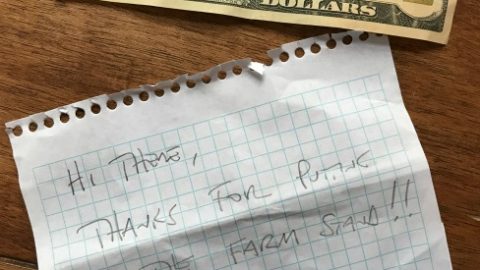 DOLLARS
HI THERE,
THANKS FOR PUTTING
THE FARM STAND!!